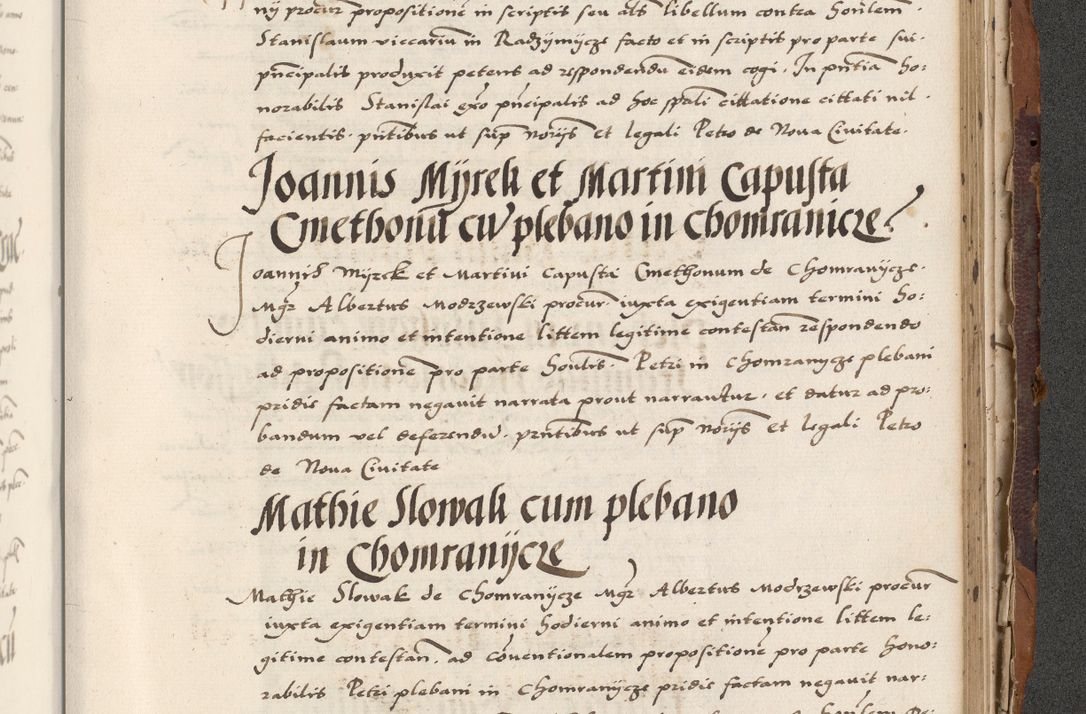 ny procur propositione in scriptis seu aĉts libellum contra honlem
Stanislaum viccariu in Radzymycze facto et in scriptis pro parte sui
pncipalis produxit petens ad respondendu eidem cogi. In pntia ho:
norabilis Stanislai exo pncipalis ad hoc spali cittatione cittati nil
facientis. pntibus ut sup norijs et legali Petro de Noua Ciuitate.
Joannis Mÿrek et Martini Capusta
Cmethonu cu plebano in Chomranicze
Joannis Mÿrek et Martini Capusta Cmethonum de Chomranÿcze.
Mgr Albertus Modrzewski procur. iuxta exigentiam termini ho:
dierni animo et intentione littem legitime contestan respondendo
ad propositione pro parte honlis. Petri in Chomranycze plebani
pridie factam negauit narrata prout narrantur. et datur ad pro:
bandum vel deferendu. prntibus ut sup norijs et legali Petro
de Noua Ciuitate
Mathie Slowak cum plebano
in Chomranÿcze
Mathie Slowak de Chomranÿcze Mgr Albertus Modrzewski procur
iuxta exigentiam termini hodierni animo et intentione littem le:
gitime contestan. ad couentionalem propositione pro parte hono:
rabilis Petri plebani in Chomranÿcze pridie factam negauit nar: